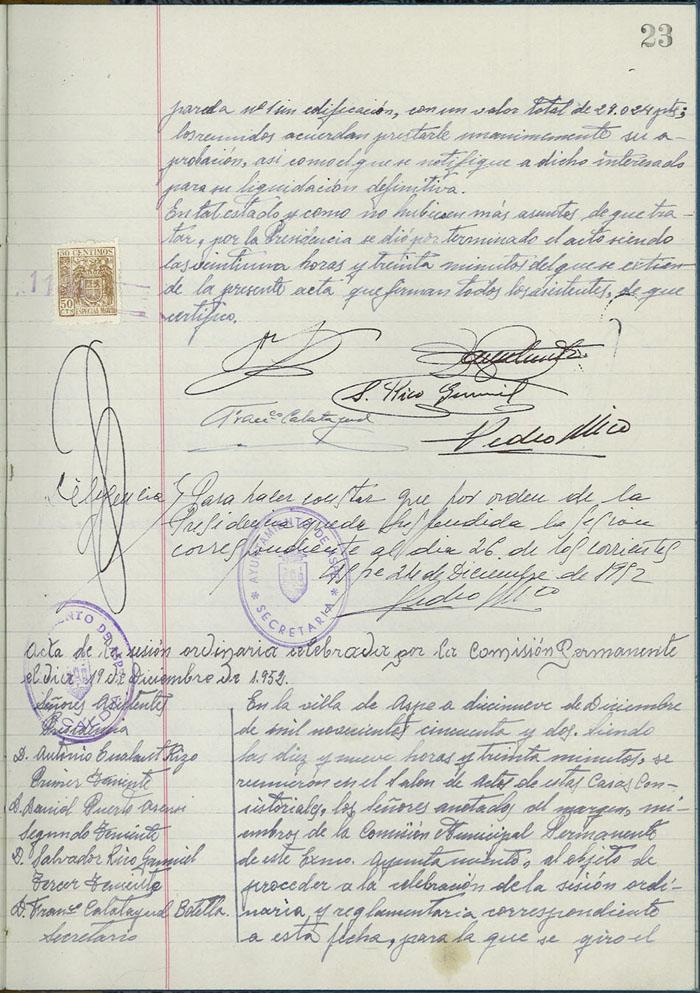 23
parcela nº 1 sin edificación, con un valor total de 29.024 pts;
los reunidos acuerdan prestarle unanimemente su a-
probación, asi como el que se notifique a dicho interesado
para su liquidación definitiva.
En tal estado y como no hubiesen más asuntos de que tra-
tar, por la Presidencia se dió por terminado el acto siendo
las veintiuna horas y treinta minutos del que se extien-
de la presente acta que firman todos los asistentes, de que
certifico.
50 CENTIMOS
50
CTS
ESPECIAL MOVIL
11
S. Rico Gumiel
Franco Calatayud
Pedro Mico
Diligencia Para hacer constar que por orden de la
Presidencia queda suspendida la sesion
correspondiente al dia 26 de los corrientes
Aspe 24 de Diciembre de 1952
Pedro Mico
AYUNTAMIENTO DE ASPE
SECRETARIA
Acta de la sesión ordinaria celebrada por la Comisión Permanente
el dia 19 de Diciembre de 1.952.
Señores Asistentes
Presidencia
D. Antonio Rizo
Primer Teniente
D. David Puerto Asensi
Segundo Teniente
D. Salvador Rico Gumiel
Tercer Teniente
D. Franco Calatayud Botella.
Secretario
En la villa de Aspe a diecinueve de Diciembre
de mil novecientos cincuenta y dos. Siendo
las diez y nueve horas y treinta minutos, se
reunieron en el Salon de Actos de estas Casas Con-
sistoriales, los Señores anotados al margen, mi-
embros de la Comisión Municipal Permanente
de este Exmo. Ayuntamiento, al objeto de
proceder a la celebración de la sesión ordi-
naria y reglamentaria correspondiente
a esta fecha, para la que se giro el